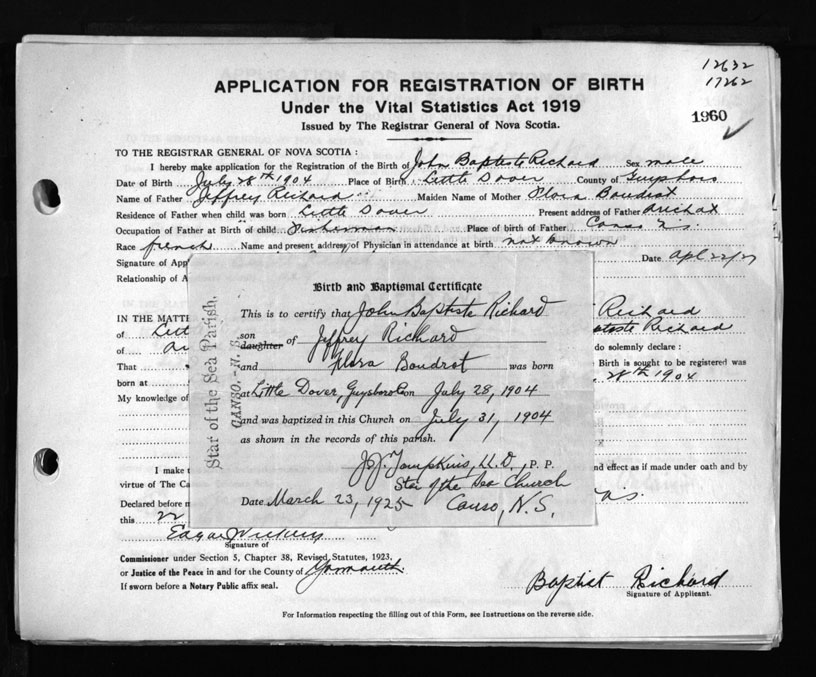 12632
17262
1960
APPLICATION FOR REGISTRATION OF BIRTH
Under the Vital Statistics Act 1919
Issued by The Registrar General of Nova Scotia.
TO THE REGISTRAR GENERAL OF NOVA SCOTIA :
I hereby make application for the Registration of the Birth of John Baptiste Richard Sex male
Date of Birth July 28th 1904 Place of Birth : Little Dover County of Guysboro
Name of Father Jeffrey Richard Maiden Name of Mother Flora Boudrot
Residence of Father when child was born Little Dover Present address of Father Arichat
Occupation of Father at Birth of child Fisherman Place of birth of Father Canso NS
Race french Name and present address of Physician in attendance at birth not known
Signature of App Date Apl 22/27
Relationship of A
IN THE MATTE Richard
of Litt ptiste Richard
of Ar do solemnly declare :
That Birth is sought to be registered was
born at 28th 1904
My knowledge of
Birth and Baptismal Certificate
This is to certify that John Baptiste Richard
son
daughter of Jeffrey Richard
and Flora Boudrot was born
at Little Dover, Guysboro Co on July 28, 1904
and was baptized in this Church on July 31, 1904
as shown in the records of this parish.
J. J. Tompkins, LL.D., P. P.
Star of the Sea Church
Date March 23, 1925 Canso, N.S.
Star of the Sea Parish,
CANSO, N. S.
I make t nd effect as if made under oath and by
virtue of The Ca
Declared before m
this 22
Signature of
Commissioner under Section 5, Chapter 38, Revised Statutes, 1923.
or Justice of the Peace in and for the County of Yarmouth
If sworn before a Notary Public affix seal.
Baptist Richard
Signature of Applicant.
For Information respecting the filling out of this Form, see Instructions on the reverse side.